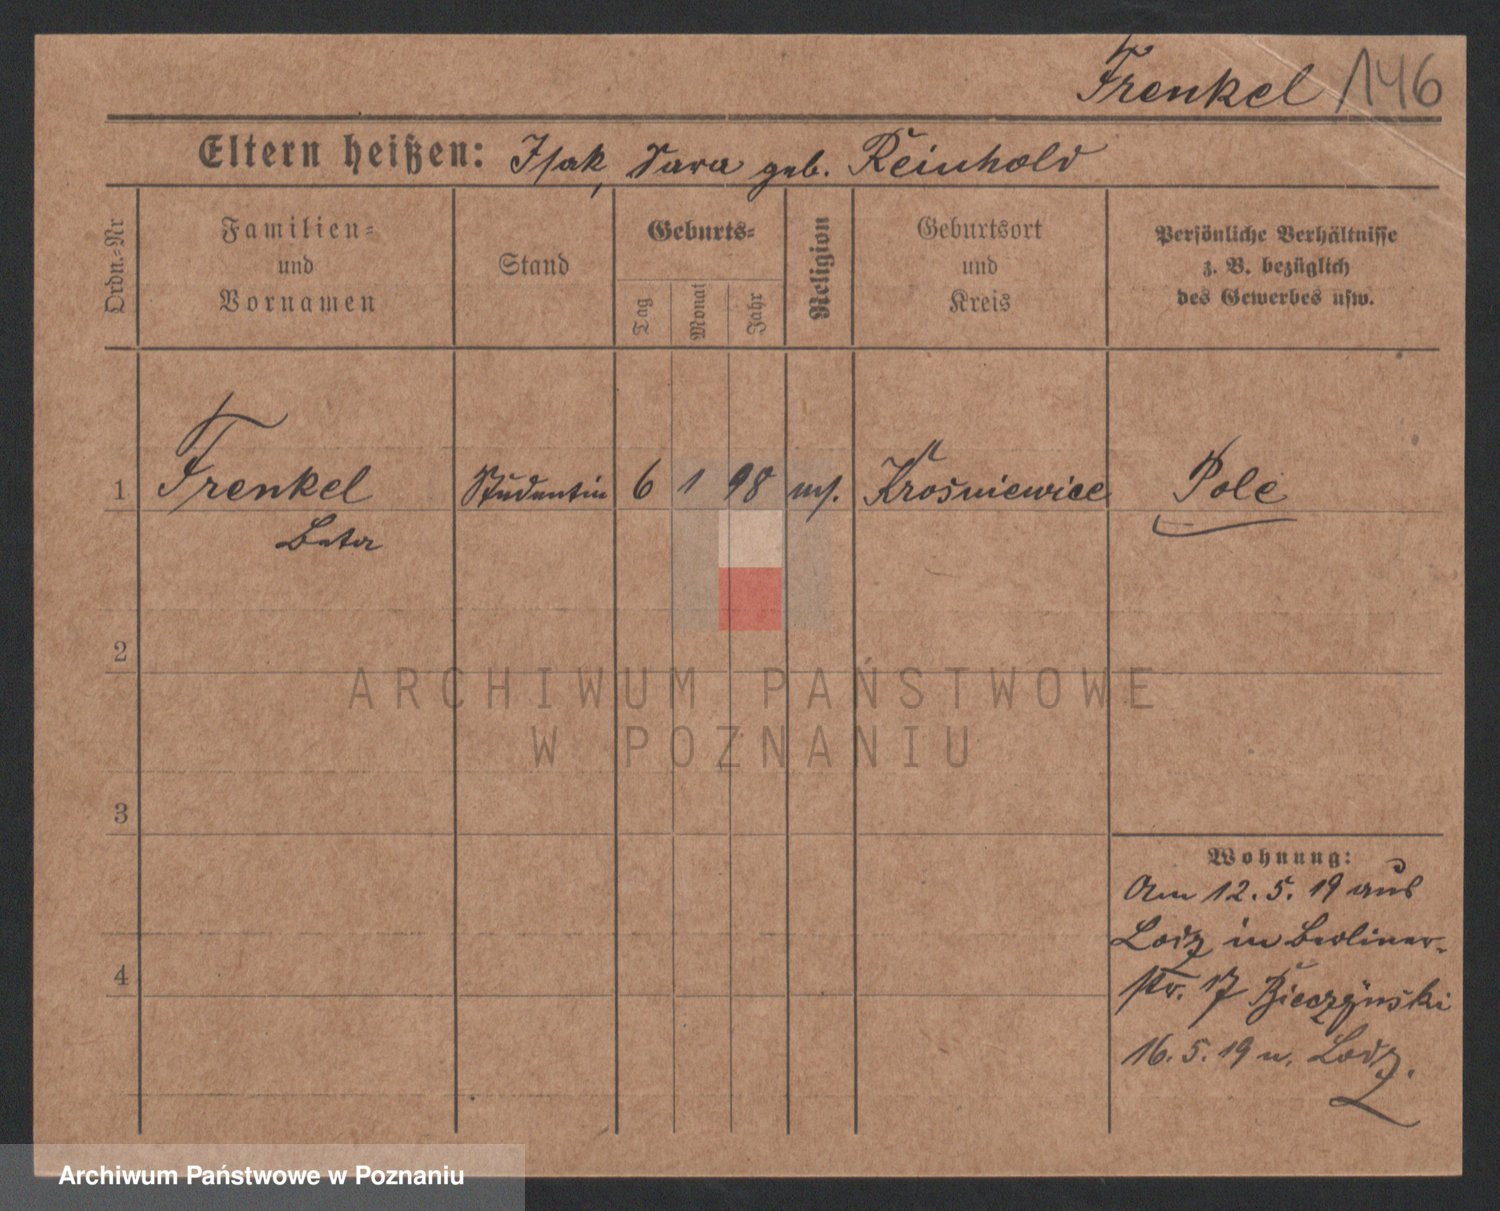 Frenkel 146
Eltern heißen: Isak, Sara geb. Reinhold
Ordn.-Nr
Familien-
und
Vornamen
Stand
Geburts-
Tag
Monat
Jahr
Religion
Geburtsort
und
Kreis
Persönliche Verhältnisse
z. B. bezüglich
des Gewerbes usw.
1 Frenkel Studentin 6 1 98 ms. Krośniewice Pole
2
3
4
Wohnung:
Am 12. 5. 19 aus
Lodz in Berliner-
str. 17 Bieczyński
16. 5. 19 n. Lodz.
ARCHIWUM PAŃSTWOWE
W POZNANIU
Archiwum Państwowe w Poznaniu